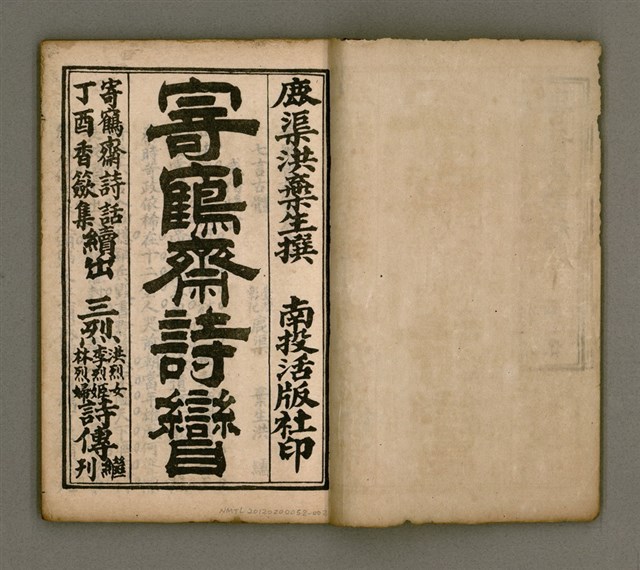 鹿渠洪棄生撰　南投活版社印
寄鶴齋詩矕
寄鶴齋詩話續出　三烈詩傳繼刊
丁酉香籢集
洪烈女
李烈姬
林烈婦
NMTL20120200058-002